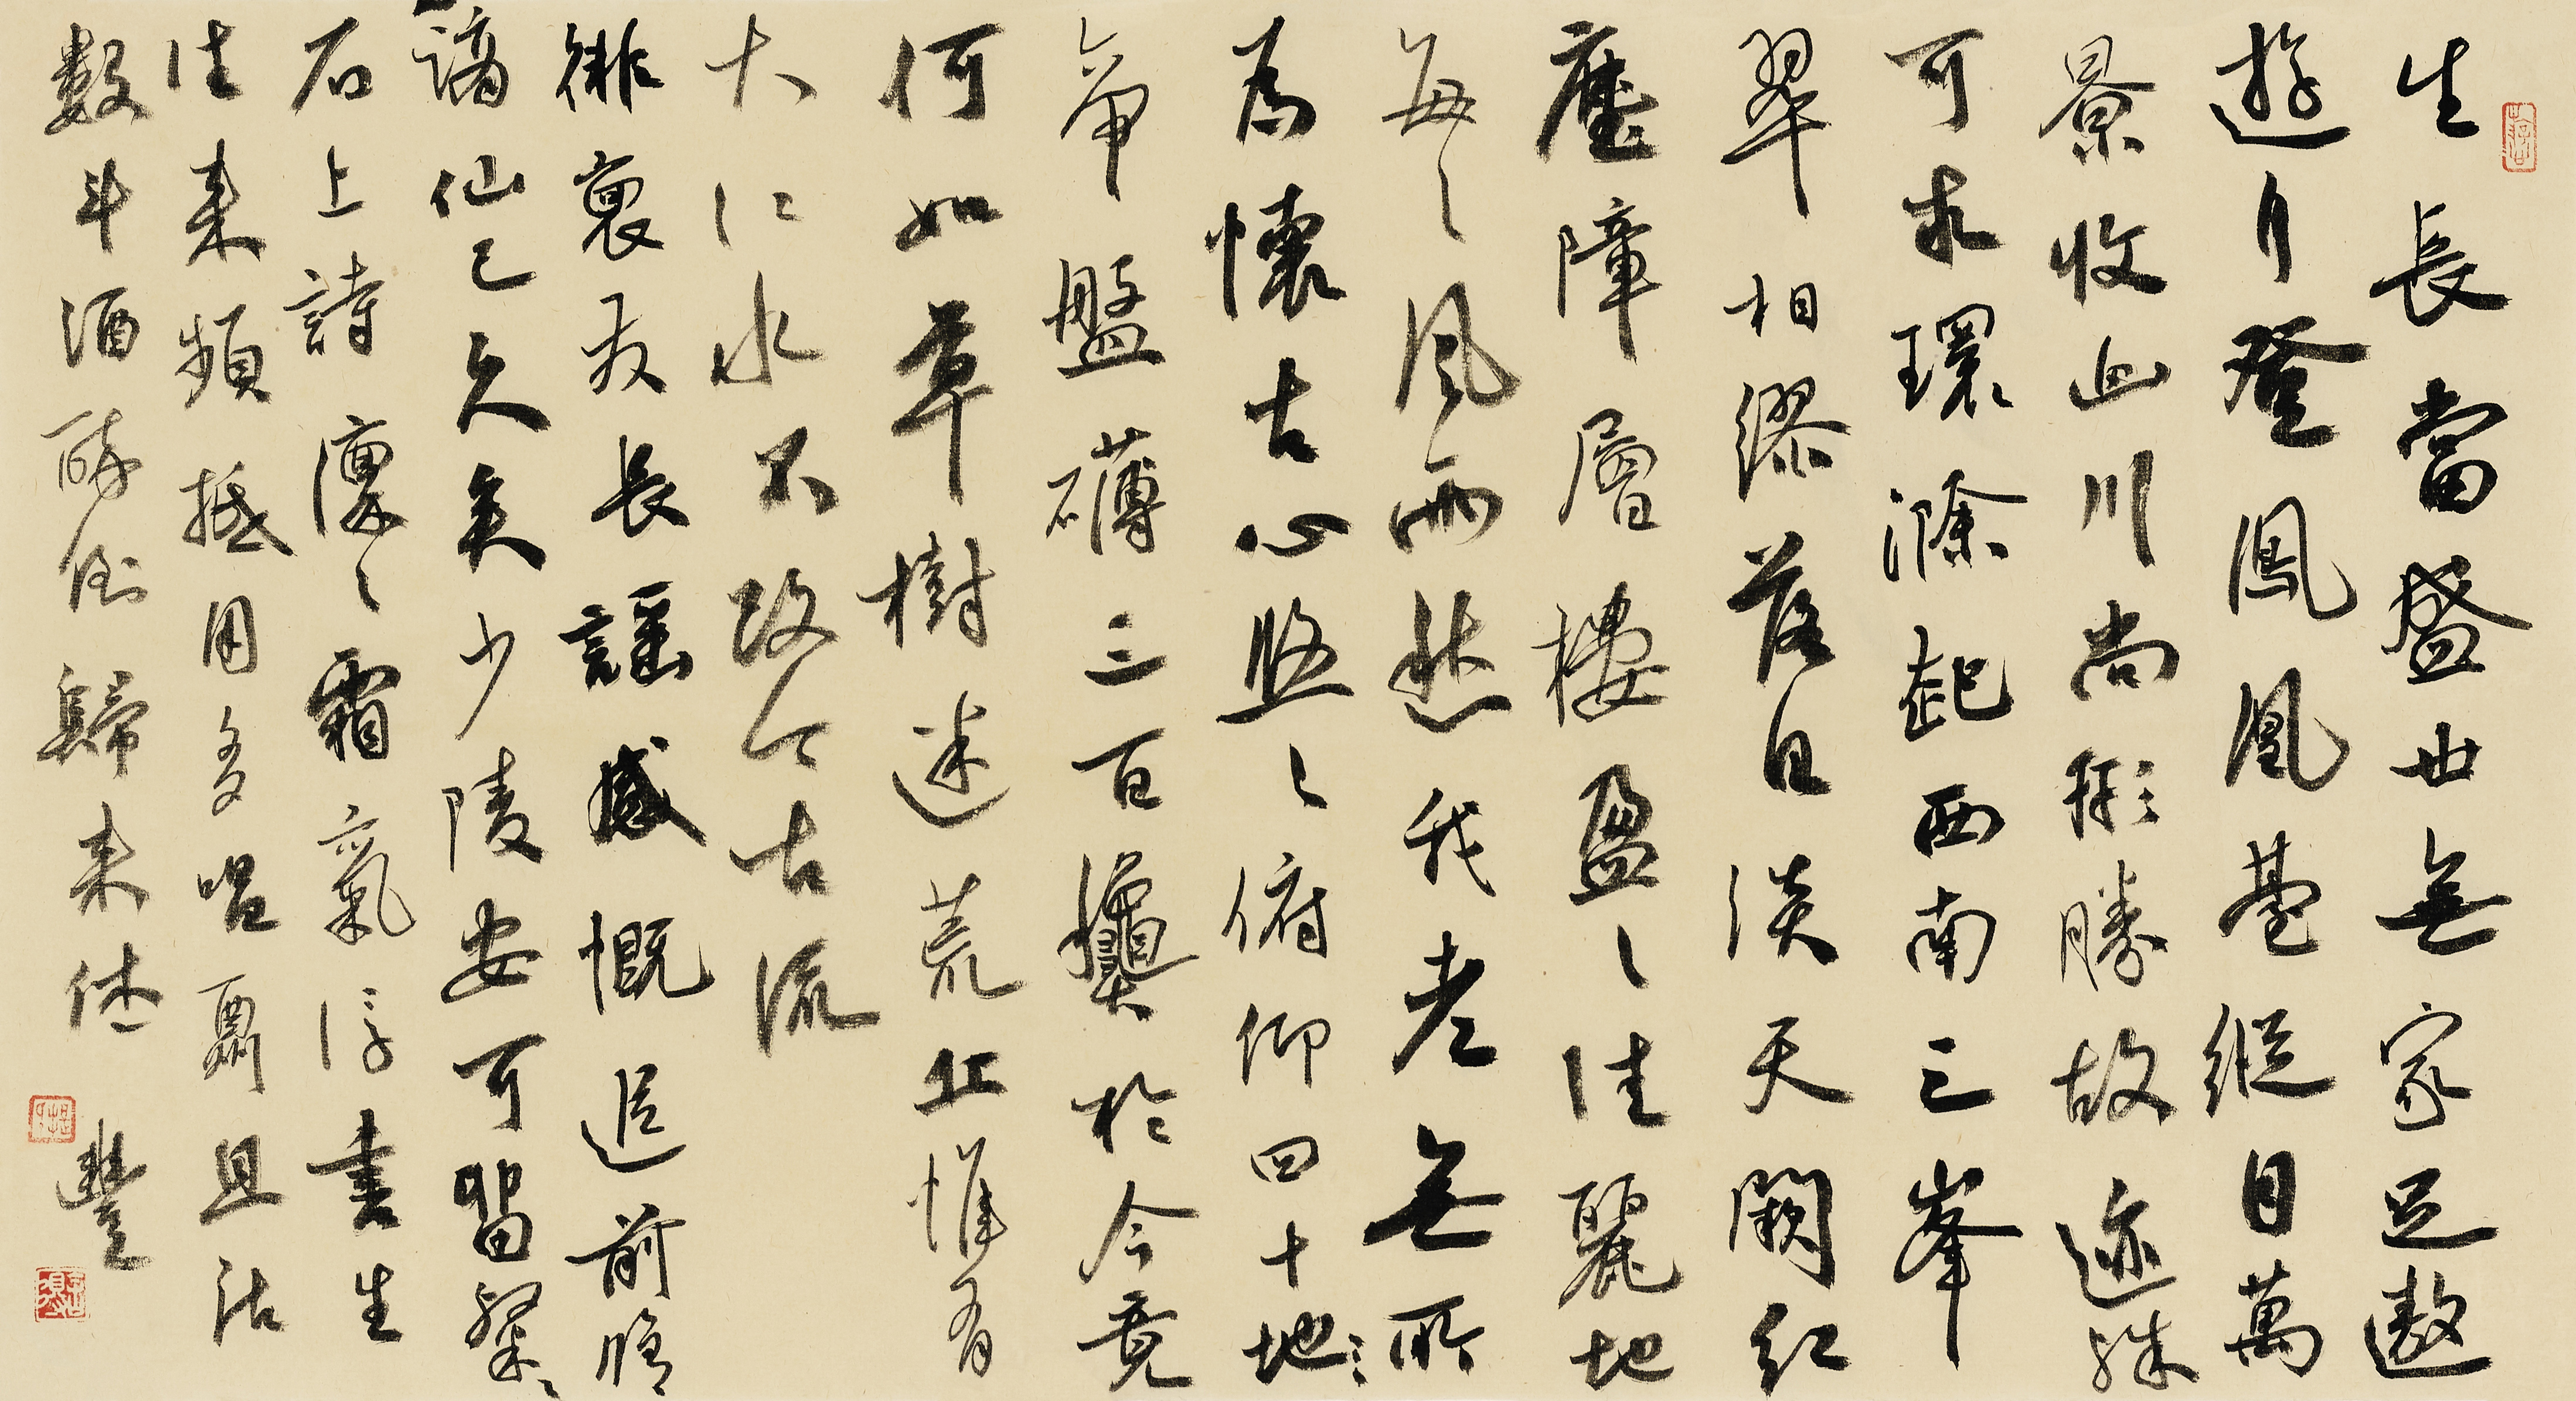 生長當盛世無家足遨
遊登鳳凰臺縱目萬
景收山川尚形勝故迹殊
可求環滁起西南三峯
翠相繆落日淡天闕紅
塵障層樓盈〻佳麗地
每〻風雨愁我老無所
為懷古心悠〻俯仰四十地
帝盤礴三百龝於今竟
何如草樹迷荒丘惟有
大江水不改今古流
徘徊發長謡感慨追前脩
謫仙已久矣少陵安可留粲〻
石上詩凜〻霜氣浮書生
往来頻抵用多且沽
數斗酒醉倒歸来休 豐